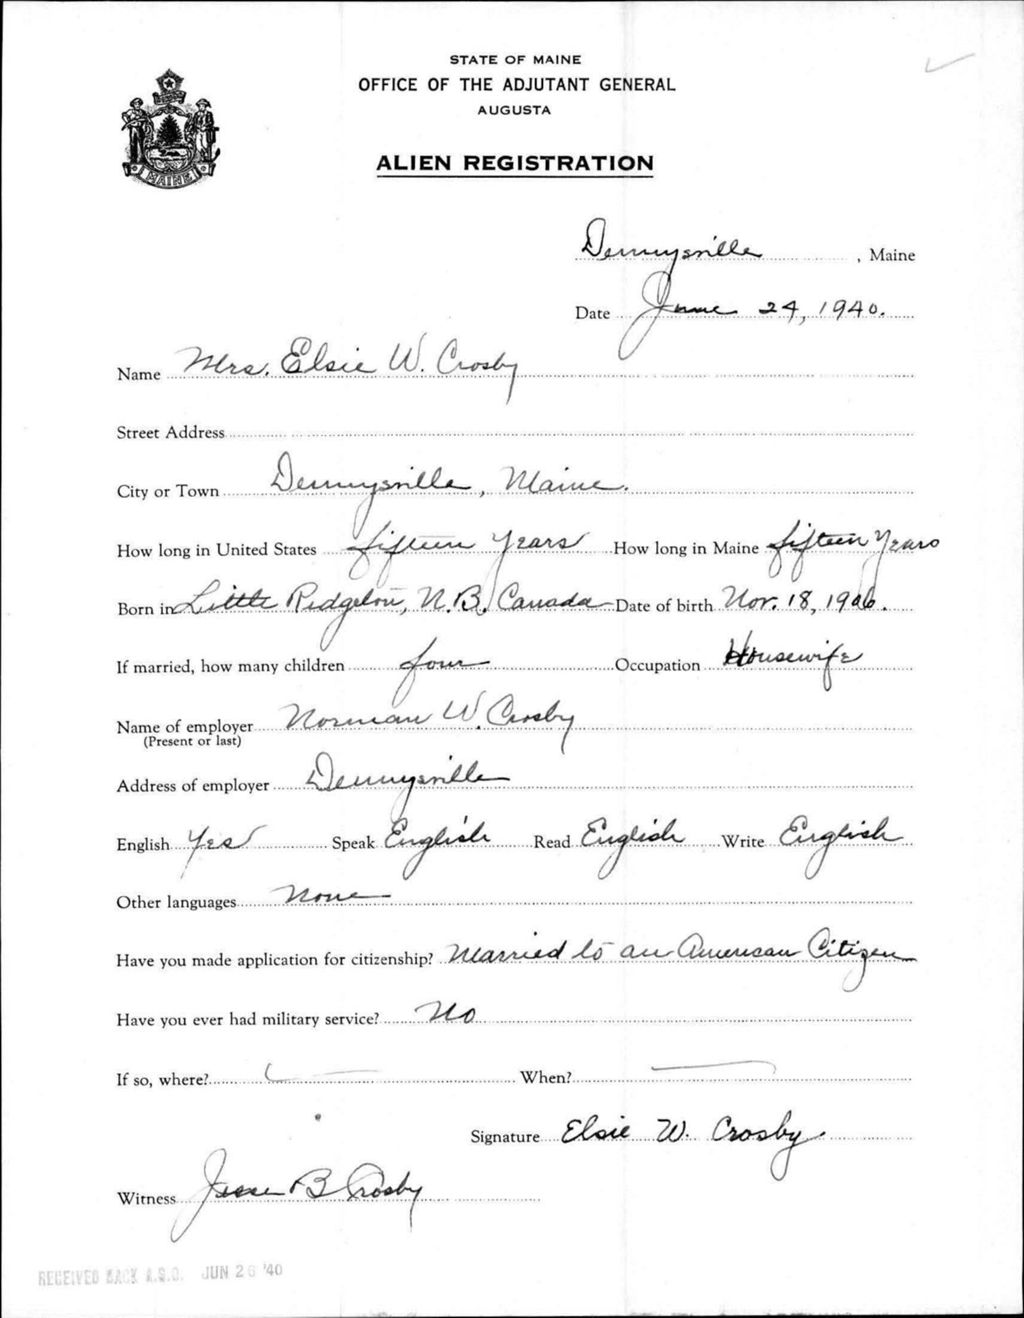 STATE OF MAINE
OFFICE OF THE ADJUTANT GENERAL
AUGUSTA
ALIEN REGISTRATION
MAINE
Dennysville, Maine
Date June 24, 1940.
Name Mrs. Elsie W. Crosby
Street Address
City or Town Dennysville, Maine.
How long in United States fifteen years How long in Maine fifteen years
Born in Little Ridgeton, N.B. Canada Date of birth Nov. 18, 1906.
If married, how many children four Occupation Housewife
Name of employer Norman W. Crosby
(Present or last)
Address of employer Dennysville
English Yes Speak English Read English Write English
Other languages None
Have you made application for citizenship? Married to an American Citizen
Have you ever had military service? No
If so, where? — When? —
Signature Elsie W. Crosby.
Witness Jesse B Crosby
RECEIVED BACK A.G.O. JUN 26 '40